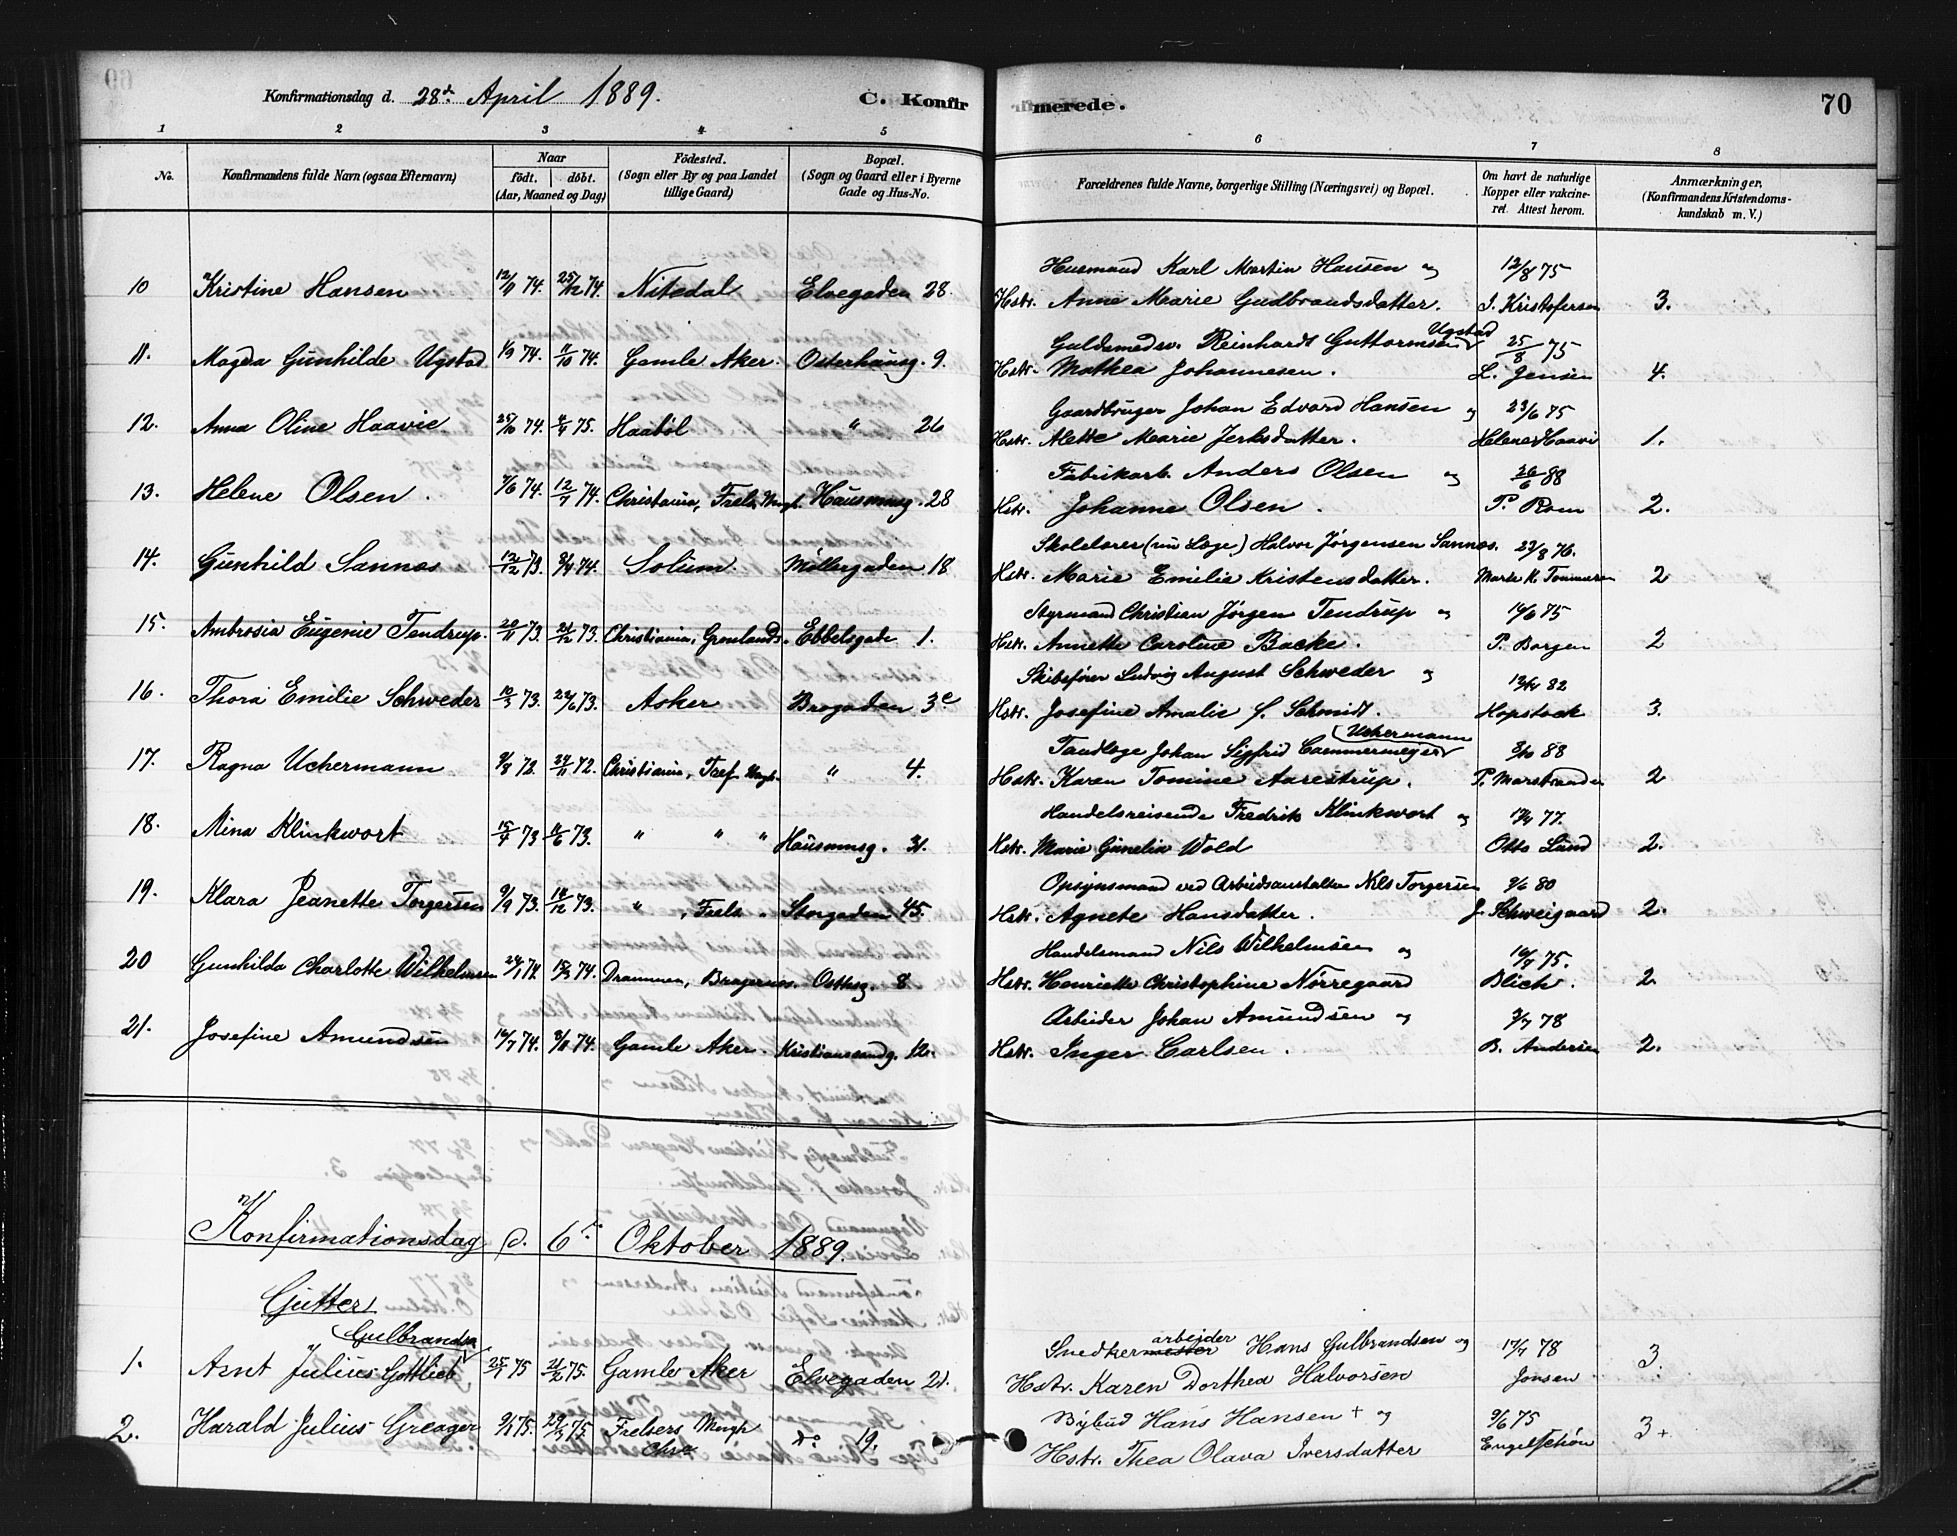 Konfirmationsdag d. 28de April 1889. C. Konfirmerede. 70
1 2 3 4 5 6 7 8
No. Konfirmandens fulde Navn (ogsaa Efternavn) Naar födt. döbt. (Aar, Maaned og Dag) Födested. (Sogn eller By og paa Landet tillige Gaard) Bopæl. (Sogn og Gaard eller i Byerne Gade og Hus-No. Forældrenes fulde Navne, borgerlige Stilling (Næringsvei) og Bopæl. Om havt de naturlige Kopper eller vakcineret. Attest herom. Anmærkninger. (Konfirmandens Kristendomskundskab m. V.)
Husmand Karl Martin Hansen og 12/8 75
10 Kristine Hansen 12/11 74. 25/12 74. Nitedal Elvegaden 28. Hstr. Anne Marie Gudbrandsdatter. J. Kristofersen 3.
Guldsmedsv. Reinhardt Guttormsen Ugstad 25/8 75
11. Magda Gunhilde Ugstad 1/9 74. 11/10 74. Gamle Aker. Osterhausg. 9. Hstr. Mathea Johannesen. L. Jensen 4.
Gaardbruger Johan Edvard Hansen og 23/6 75
12. Anna Oline Haavie 25/10 74. 4/4 75. Haabøl " 26 Hstr. Alette Marie Jerksdatter. Helene Haavi 1.
Fabrikarb. Anders Olsen og 26/6 88
13. Helene Olsen. 7/6 74. 12/7 74. Christiania, Frels. Mengh. Hausmansg. 28 Hstr. Johanne Olsen. P. Rom 2.
Skolelærer (nu Læge) Halvor Jørgensen Sannæs. 23/8 76.
14. Gunhild Sannæs 12/12 73. 8/4 74. Solum Møllergaden 18 Hstr. Marie Emilie Kristensdatter. 2
Styrmand Christian Jørgen Tendrup og 14/6 75
15. Ambrosia Eugenie Tendrup. 20/11 73. 21/12 73. Christiania, Grønlands. Ebbelsgade 1. Hstr. Annette Caroline Backe. P. Borgen 2
Skibsfører Ludvig August Schweder og 82
16. Thora Emilie Schweder 10/3 73. 22/6 73. Asker Brogaden 3c Hstr. Josefine Amalie f. Schmidt. Hopstock 3.
Tandlæge Johan Sigfrid Cammermeyer Uchermann 3/10 88
17. Ragna Uchermann 9/8 72. 24/11 72. Christiania, Tref. Mengh. " 4. Hstr. Karen Tomine Aarestrup. P. Marstrander 2
Handelsreisende Fredrik Klinkwort og 77.
18. Mina Klinkwort 15/4 73 11/6 73. " " " Hausmansg. 31. Hstr. Marie Gunelia Wold Otto Lund 2.
Opsynsmand ved Arbeidsanstalten Nils Torgersen 9/6 80
19. Klara Jeanette Torgersen 9/9 73. 14/12 73. " , Frels. " Storgaden 45. Hstr. Agnete Hansdatter. J. Schweigaard 2.
Handelsmand Nils Wilhelmsen og 75.
20 Gunhilda Charlotte Wilhelmsen 24/1 74. 15/3 74. Drammen, Bragernes. 8 Hstr. Henriette Christophine Nørregaard Blich. 2
Arbeider Johan Amundsen og 78
21. Josefine Amundsen 16/7 74. 8/11 74. Gamle Aker. Kristianssandg. 12. Hstr. Inger Carlsen. B. Andersen 2.
Konfirmationsdag d. 6te Oktober 1889.
Gutter
Gulbrandsen Snedkermester arbejder Hans Gulbrandsen og 17/4 78
1. Arnt Julius Gottlieb 25/1 75 21/2 75. Gamle Aker Elvegaden 21. Hstr. Karen Dorthea Halvorsen Jonsen 3.
Bybud Hans Hansen + og 9/6 75
2. Harald Julius Greager 9/1 75. 29/3 75 Frelsers Mengh. Chra. do 19. Hstr. Thea Olava Iversdatter Engelschøn 3+